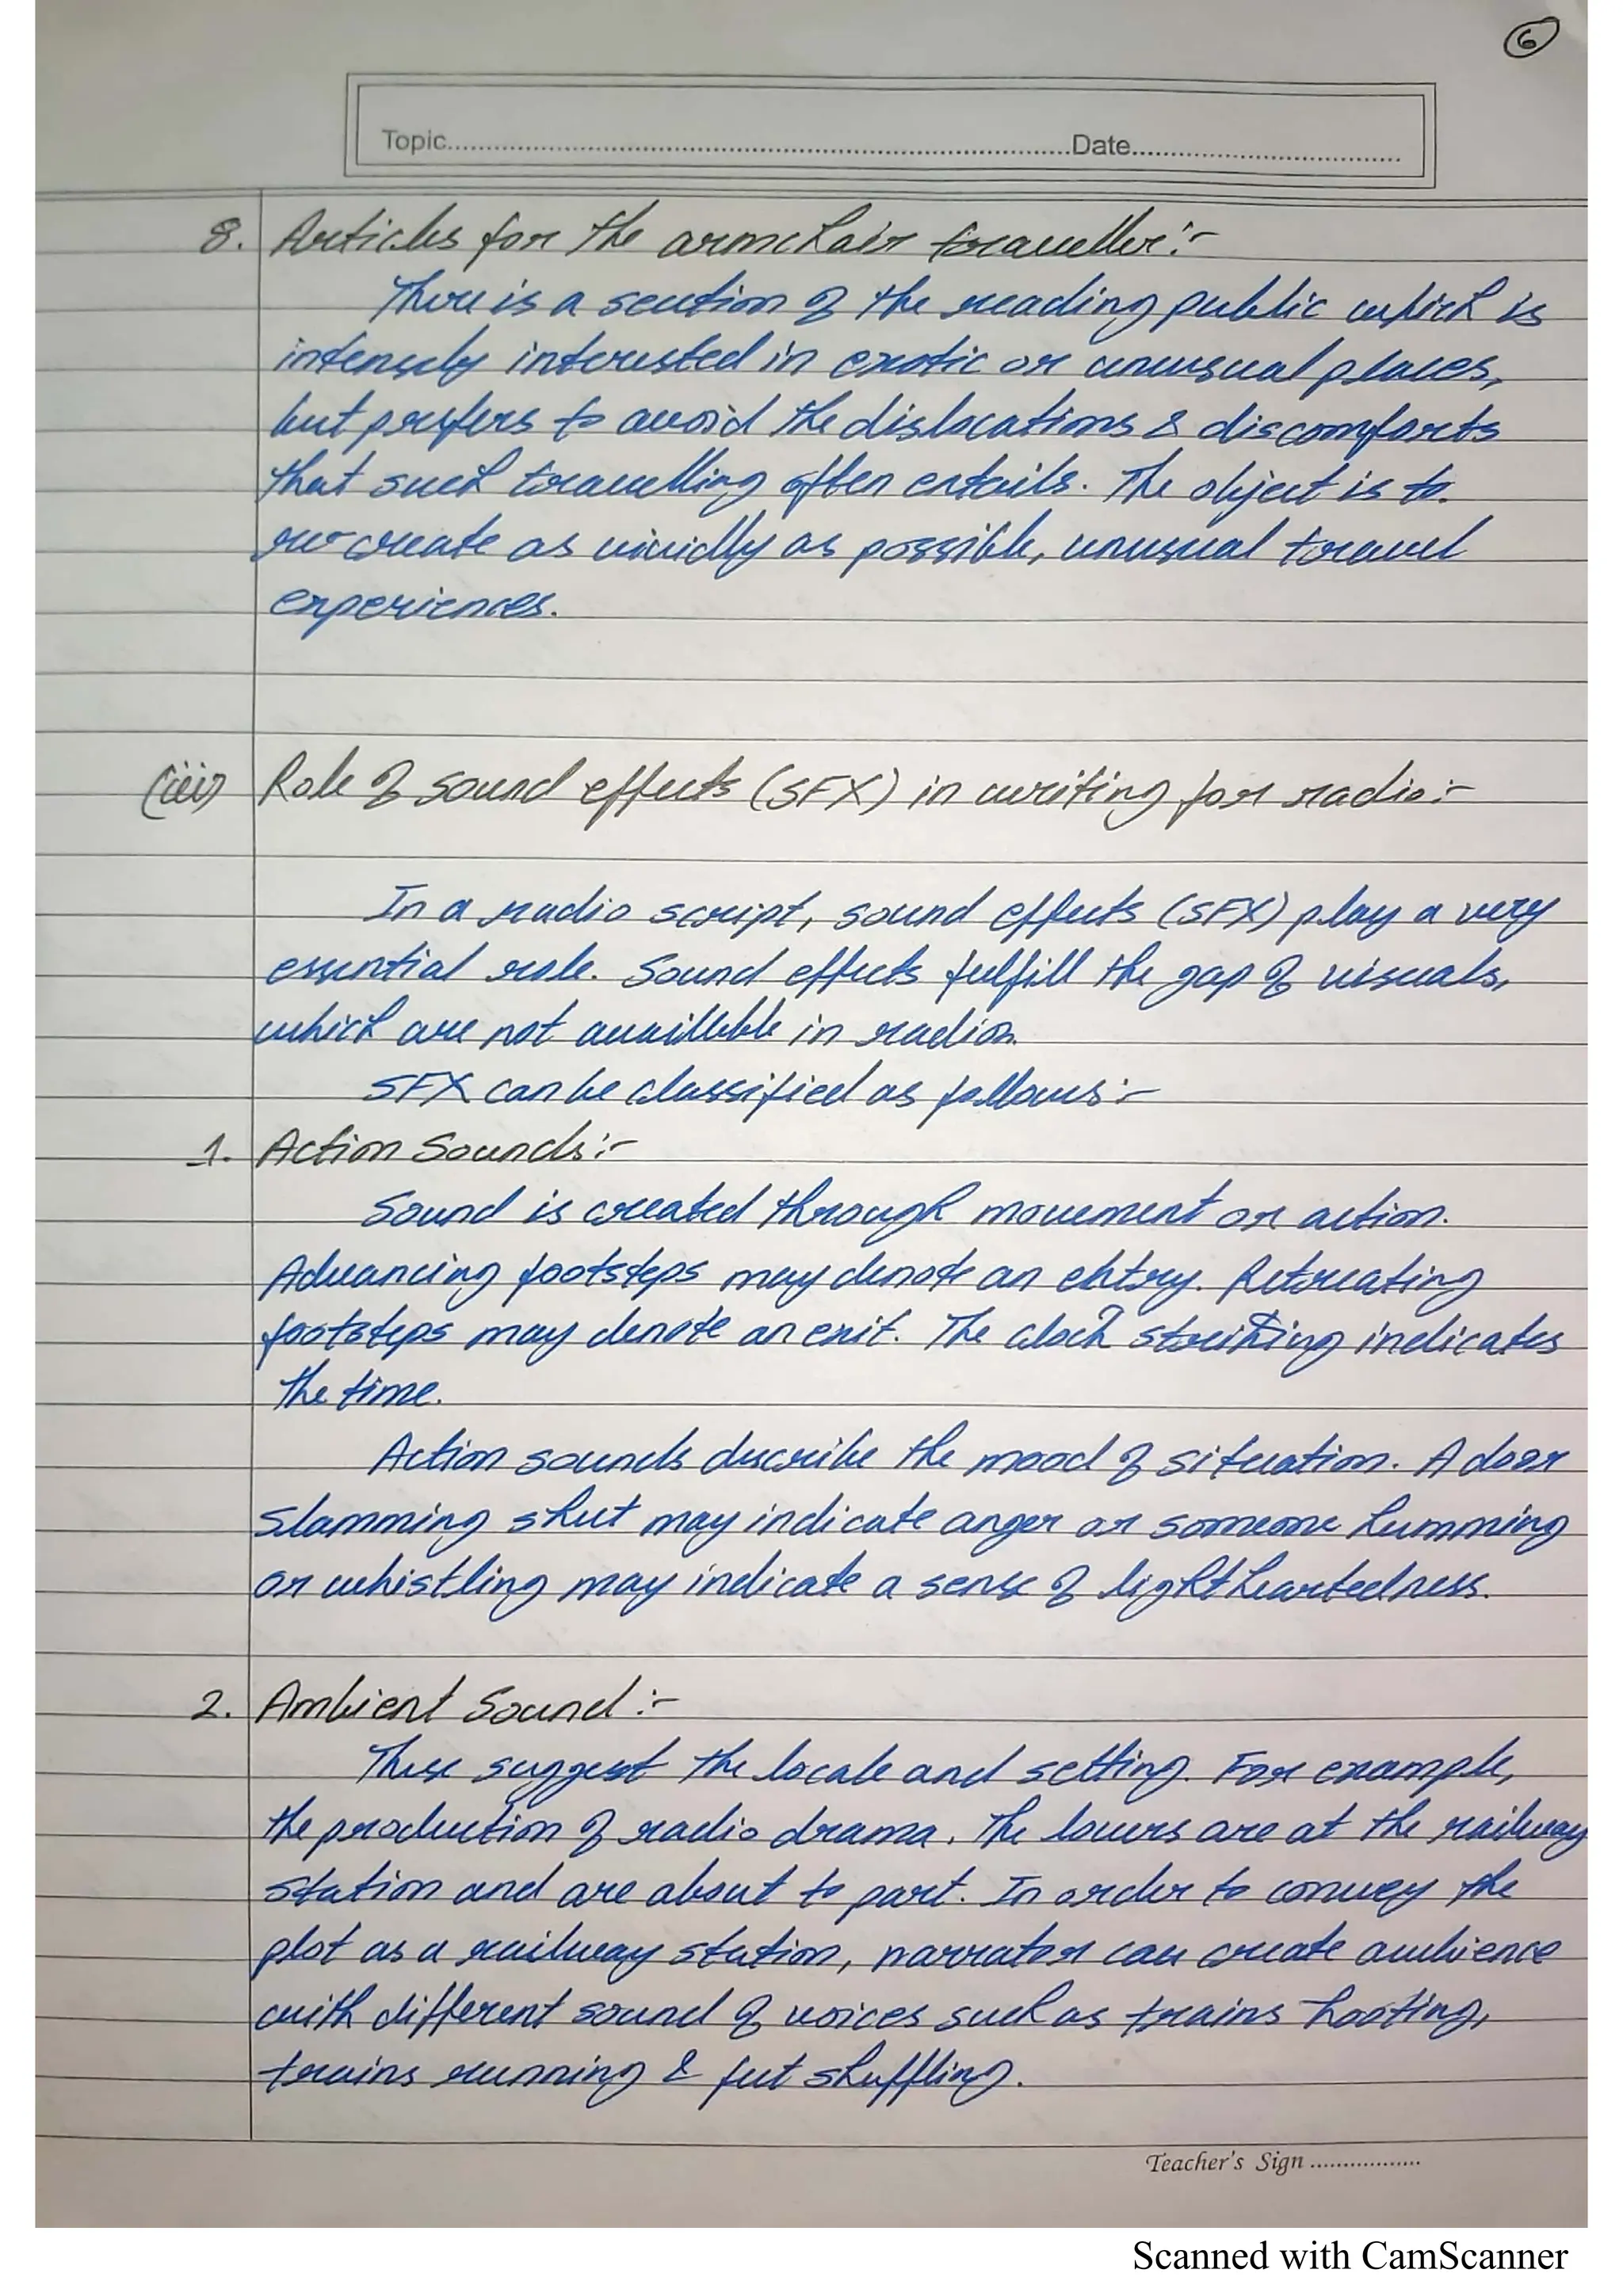 6
Topic..........Date..........
8. Articles for the armchair traveller:-
There is a section of the reading public which is
intensely interested in exotic or unusual places,
but prefers to avoid the dislocations & discomforts
that such travelling often entails. The object is to
re-create as vividly as possible, unusual travel
experiences.
(iii) Role of sound effects (SFX) in writing for radio:-
In a radio script, sound effects (SFX) play a very
essential role. Sound effects fulfill the gap of visuals,
which are not availlble in radion.
SFX can be classified as follows:-
1. Action Sounds:-
Sound is created through movement or action.
Advancing footsteps may denote an entry. Retreating
footsteps may denote an exit. The clock striking indicates
the time.
Action sounds describe the mood of situation. A door
slamming shut may indicate anger or someone humming
or whistling may indicate a sense of lightheartedness.
2. Ambient Sound:-
These suggest the locale and setting. For example,
the production of radio drama. The lovers are at the railway
station and are about to part. In order to convey the
plot as a railway station, narrator can create ambience
with different sound of voices such as trains hooting,
trains running & feet shuffling.
Teacher's Sign ..................
Scanned with CamScanner